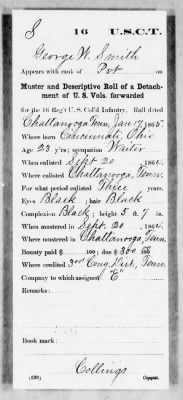 S 16 U.S.C.T.
George W. Smith
Appears with rank of Pvt on
Muster and Descriptive Roll of a Detach-
ment of U. S. Vols. forwarded
for the 16 Reg't U. S. Col'd Infantry. Roll dated
Chattanooga Tenn, Jan. 17, 1865.
Where born Cincinnati, Ohio
Age 23 y'rs; occupation Waiter
When enlisted Sept. 20, 1864.
Where enlisted Chattanooga, Tenn.
For what period enlisted Three years.
Eyes Black; hair Black
Complexion Black; height 5 ft. 7 in.
When mustered in Sept. 20, 1864.
Where mustered in Chattanooga, Tenn
Bounty paid $ 100; due $ 300
Where credited 3rd Cong. Dist., Tenn.
Company to which assigned "E"
Remarks:
Book mark:
Collings
(339) Copyist.